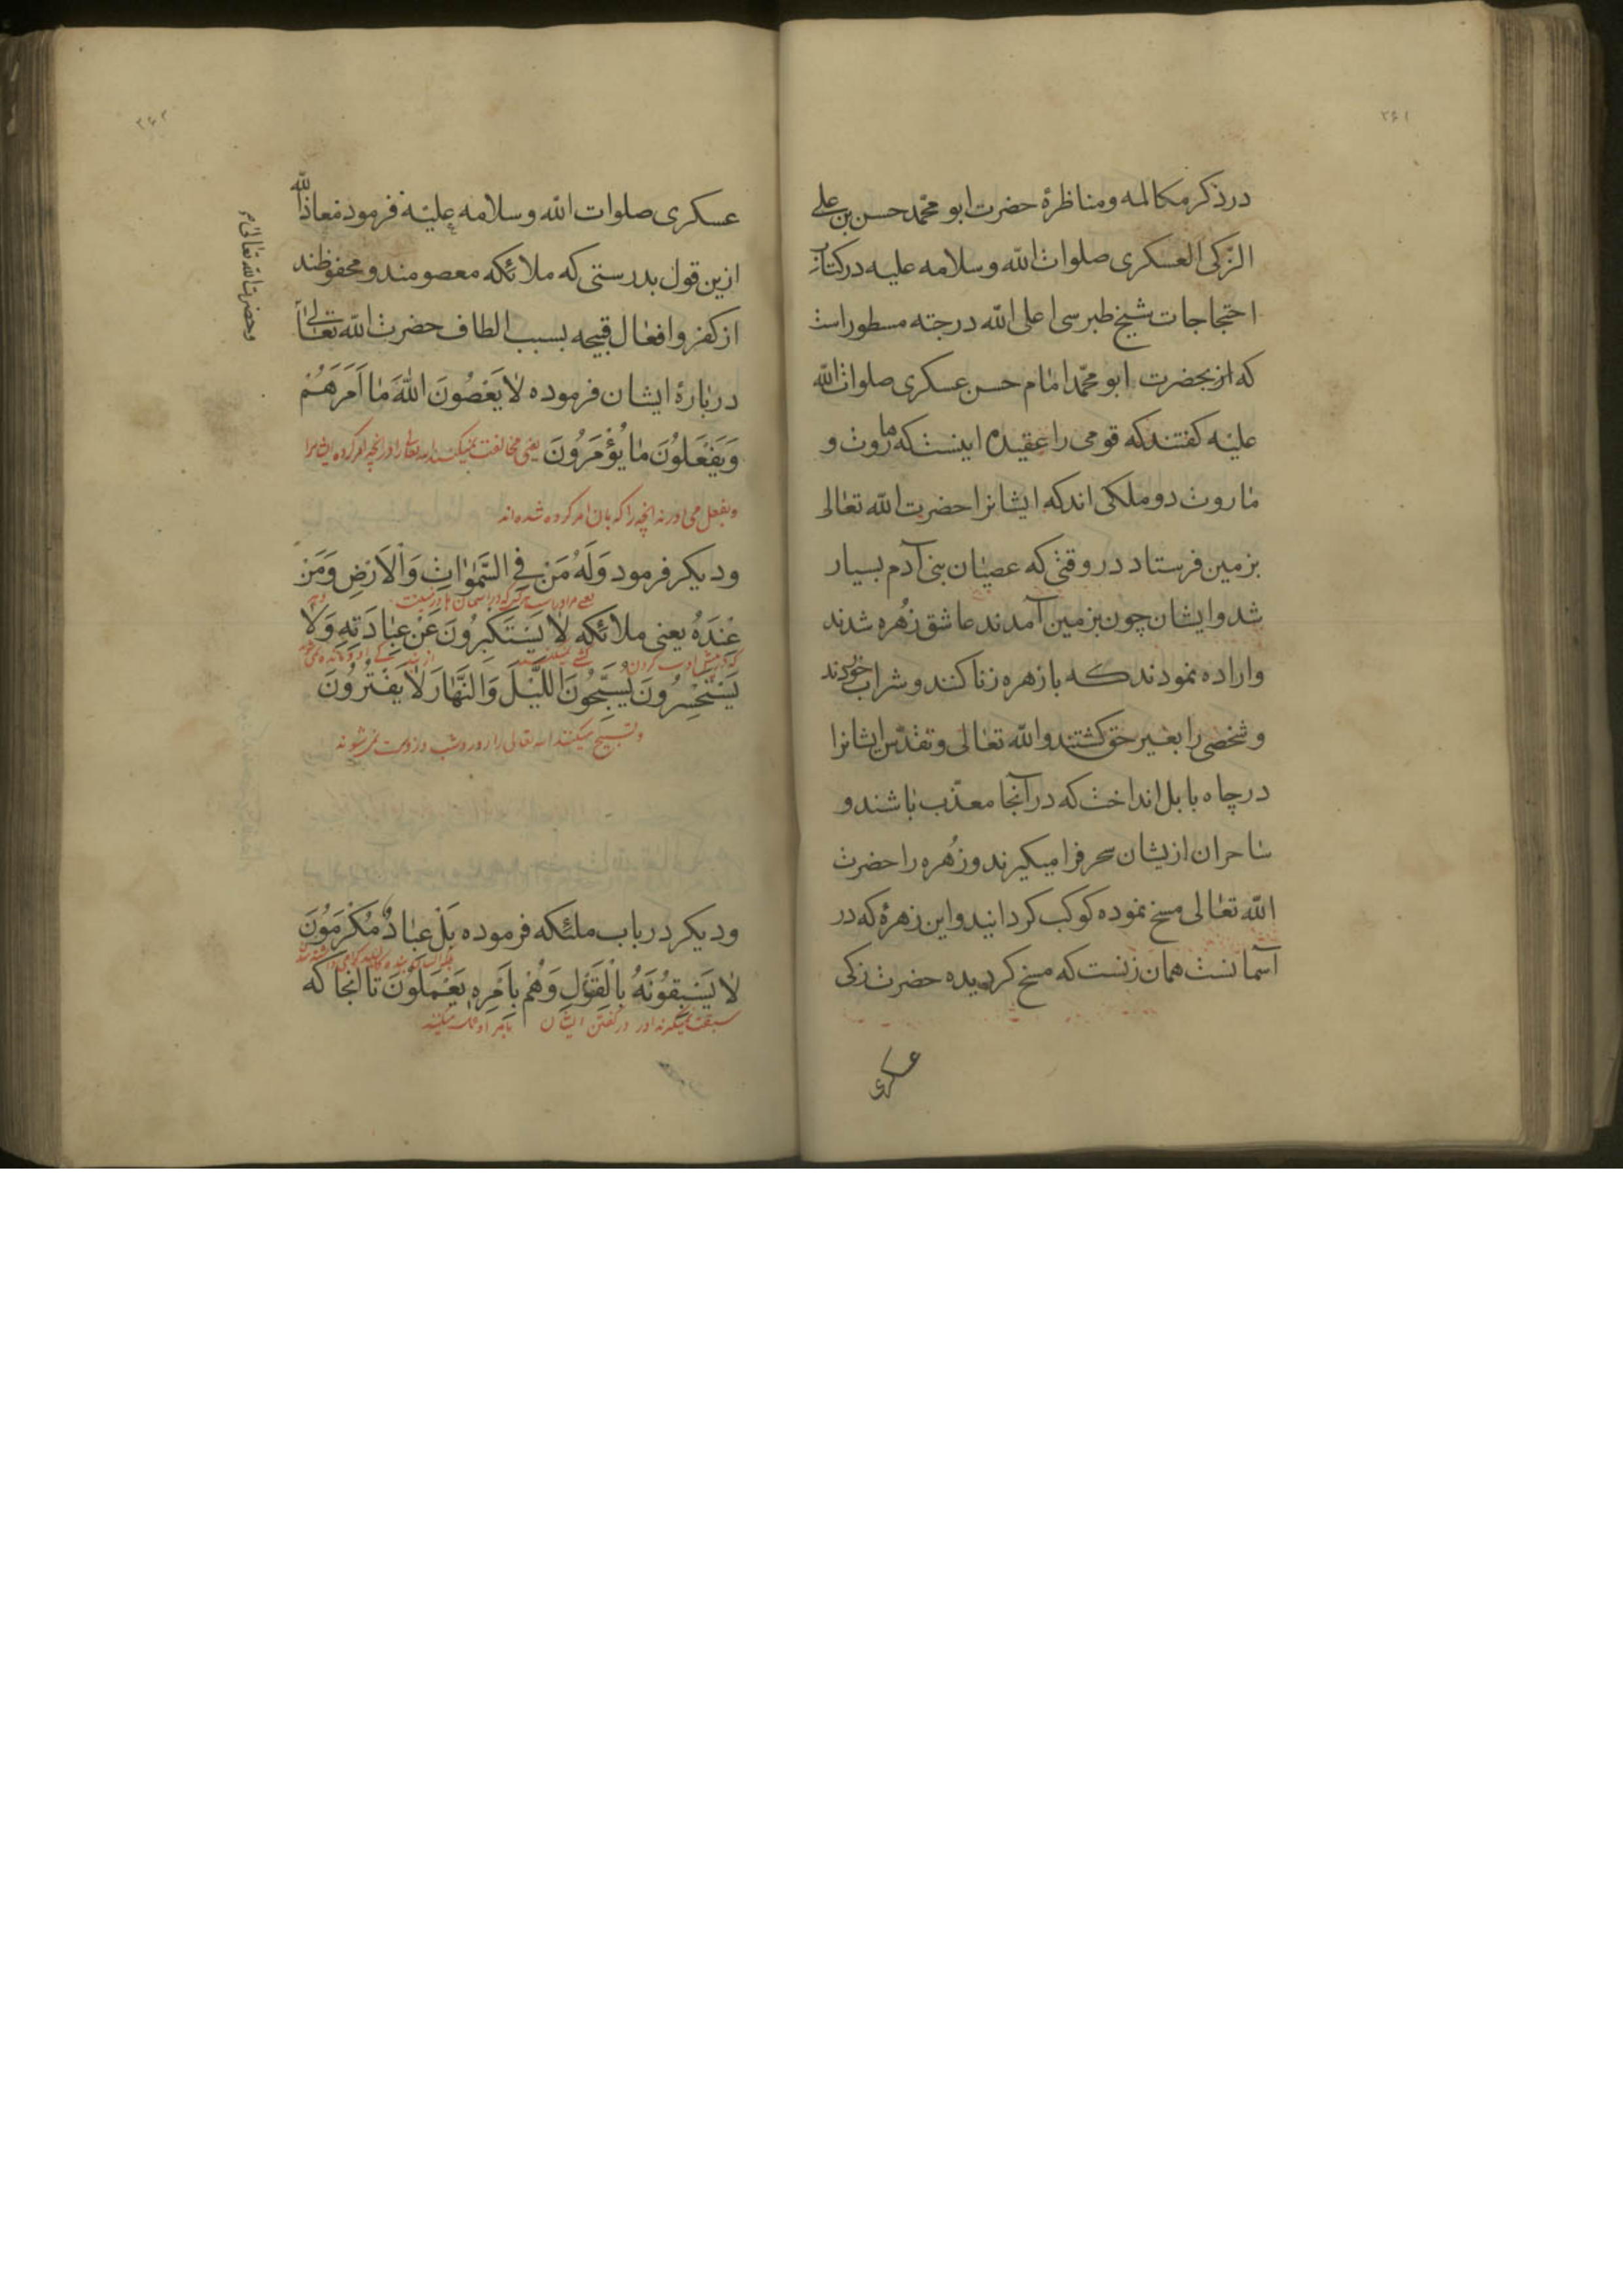 ۲۶۱
درذکر مکالمه ومناظرۀ حضرت ابو محمّد حسن بن علی
الزّکی العسکری صلوات الله وسلامه علیه درکتاب
احتجاجات شیخ طبرسی اعلی الله درجته مسطور است
که از بحضرت ابو محمّد امام حسن عسکری صلوات الله
علیه کفتند که قومی را عقیده اینست که ماروت و
ماروت دو ملکی اند که ایشانرا حضرت الله تعالی
بزمین فرستاد در وقتی که عصیان بنی آدم بسیار
شد وایشان چون بزمین آمدند عاشق زُهره شدند
واراده نمودند که با زهره زنا کنند و شراب خوردند
و شخصی را بغیر حق کشتند و الله تعالی وتقدّس ایشانرا
در چاه بابل انداخت که در آنجا معذّب باشند و
ساحران ازیشان سحر فرا میکیرند وزُهره را حضرت
الله تعالی مسخ نموده کوکب کردانید واین زهرۀ که در
آسمانست همان زنست که مسخ کردیده حضرت زکی
عسکری
۲۶۲
عسکری صلوات الله وسلامه علیه فرمود معاذ الله
ازین قول بدرستی که ملائکه معصومند و محفوظند
از کفر وافعال قبیحه بسبب الطاف حضرت الله تعالی
وحضرت الله تعالی
دربارۀ ایشان فرموده لَا یَعْصُونَ اللّٰهَ مَا اَمَرَهُمْ
وَیَفْعَلُونَ مَا یُؤْمَرُونَ یعنی مخالفت نمیکنند الله تعالی را در انچه امر کرده ایشانرا
وبفعل می اورند انچه را که بان امر کرده شده اند
ودیکر فرمود وَلَهُ مَنْ فِی السَّمٰوَاتِ وَالْاَرْضِ وَمَنْ
یعنی مر او راست هر که در اسمان ها و زمینست
عِنْدَهُ یعنی ملائکه لَا یَسْتَکْبِرُونَ عَنْ عِبَادَتِهِ وَلَا
یَسْتَحْسِرُونَ یُسَبِّحُونَ اللَّیْلَ وَالنَّهَارَ لَا یَفْتُرُونَ
وتسبیح میکنند الله تعالی را روز وشب و سست نمیشوند
ودیکر درباب ملئکه فرموده بَلْ عِبَادٌ مُکْرَمُونَ
لَا یَسْبِقُونَهُ بِالْقَوْلِ وَهُمْ بِاَمْرِهِ یَعْمَلُونَ تا انجا که
سبقت نمیکیرند اورا در کفتن ایشان بامر او عمل میکنند